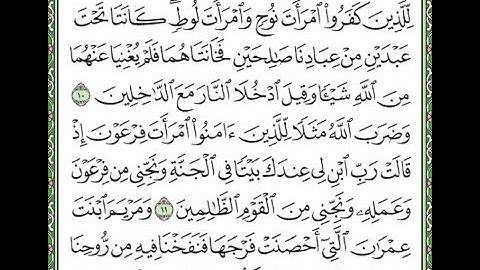 لِّلَّذِينَ كَفَرُوا۟ ٱمْرَأَتَ نُوحٍ وَٱمْرَأَتَ لُوطٍ ۖ كَانَتَا تَحْتَ
عَبْدَيْنِ مِنْ عِبَادِنَا صَٰلِحَيْنِ فَخَانَتَاهُمَا فَلَمْ يُغْنِيَا عَنْهُمَا
مِنَ ٱللَّهِ شَيْـًٔا وَقِيلَ ٱدْخُلَا ٱلنَّارَ مَعَ ٱلدَّٰخِلِينَ ١٠
وَضَرَبَ ٱللَّهُ مَثَلًا لِّلَّذِينَ ءَامَنُوا۟ ٱمْرَأَتَ فِرْعَوْنَ إِذْ
قَالَتْ رَبِّ ٱبْنِ لِى عِندَكَ بَيْتًا فِى ٱلْجَنَّةِ وَنَجِّنِى مِن فِرْعَوْنَ
وَعَمَلِهِۦ وَنَجِّنِى مِنَ ٱلْقَوْمِ ٱلظَّٰلِمِينَ ١١ وَمَرْيَمَ ٱبْنَتَ
عِمْرَٰنَ ٱلَّتِىٓ أَحْصَنَتْ فَرْجَهَا فَنَفَخْنَا فِيهِ مِن رُّوحِنَا